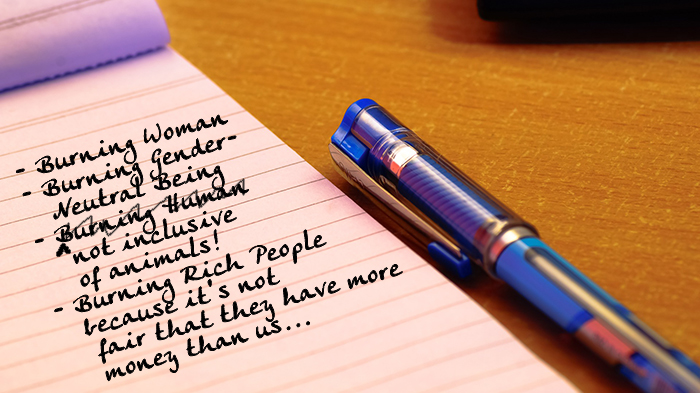 - Burning Woman
- Burning Gender-
Neutral Being
- Burning Human
^ not inclusive
of animals!
- Burning Rich People
because it's not
fair that they have more
money than us...